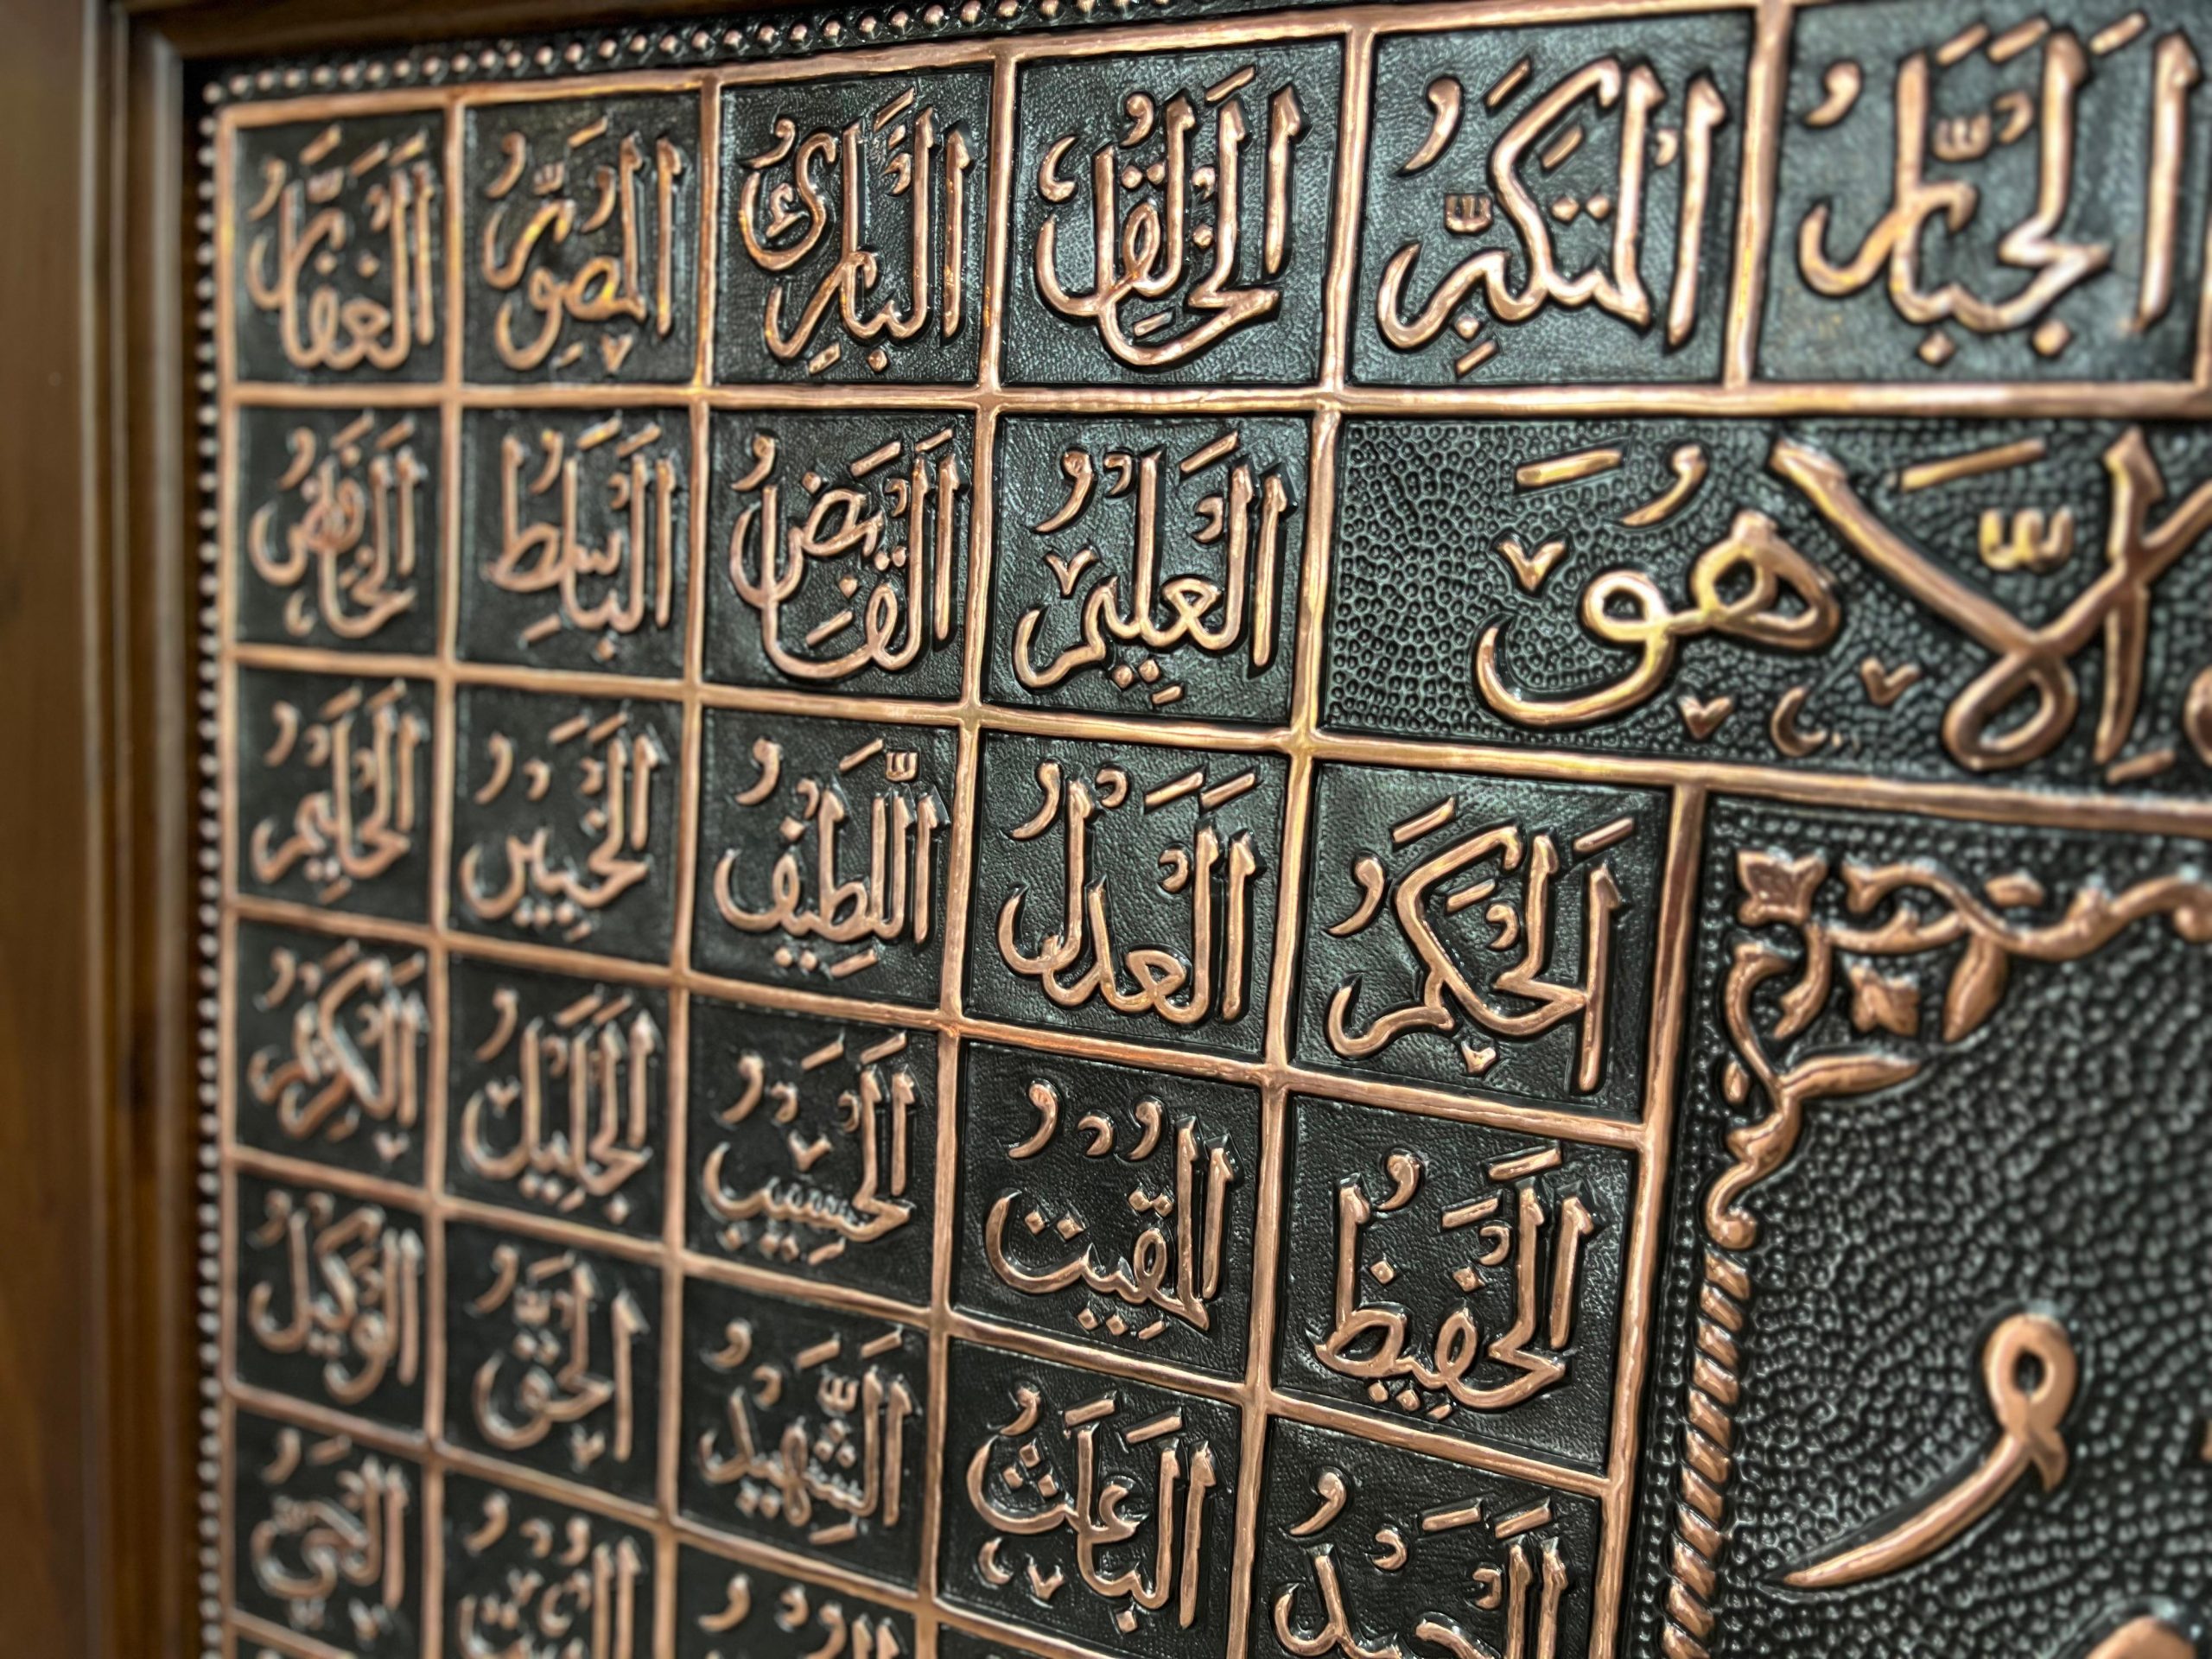 الْجَبَّارُ الْمُتَكَبِّرُ الْخَالِقُ الْبَارِئُ الْمُصَوِّرُ الْغَفَّارُ
إِلَّا هُوَ الْعَلِيمُ الْقَابِضُ الْبَاسِطُ الْخَافِضُ
الْحَكَمُ الْعَدْلُ اللَّطِيفُ الْخَبِيرُ الْحَلِيمُ
الْحَفِيظُ الْمُقِيتُ الْحَسِيبُ الْجَلِيلُ الْكَرِيمُ
الْحَمِيدُ الْبَاعِثُ الشَّهِيدُ الْحَقُّ الْوَكِيلُ